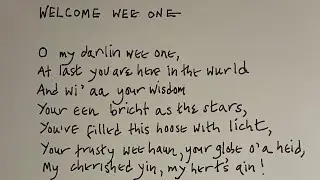 WELCOME WEE ONE
O my darlin wee one,
At last you are here in the wurld
And wi' aa your wisdom
Your een bricht as the stars,
You've filled this hoose with licht,
Your trusty wee haun, your globe o'a heid,
My cherished yin, my hert's ain!